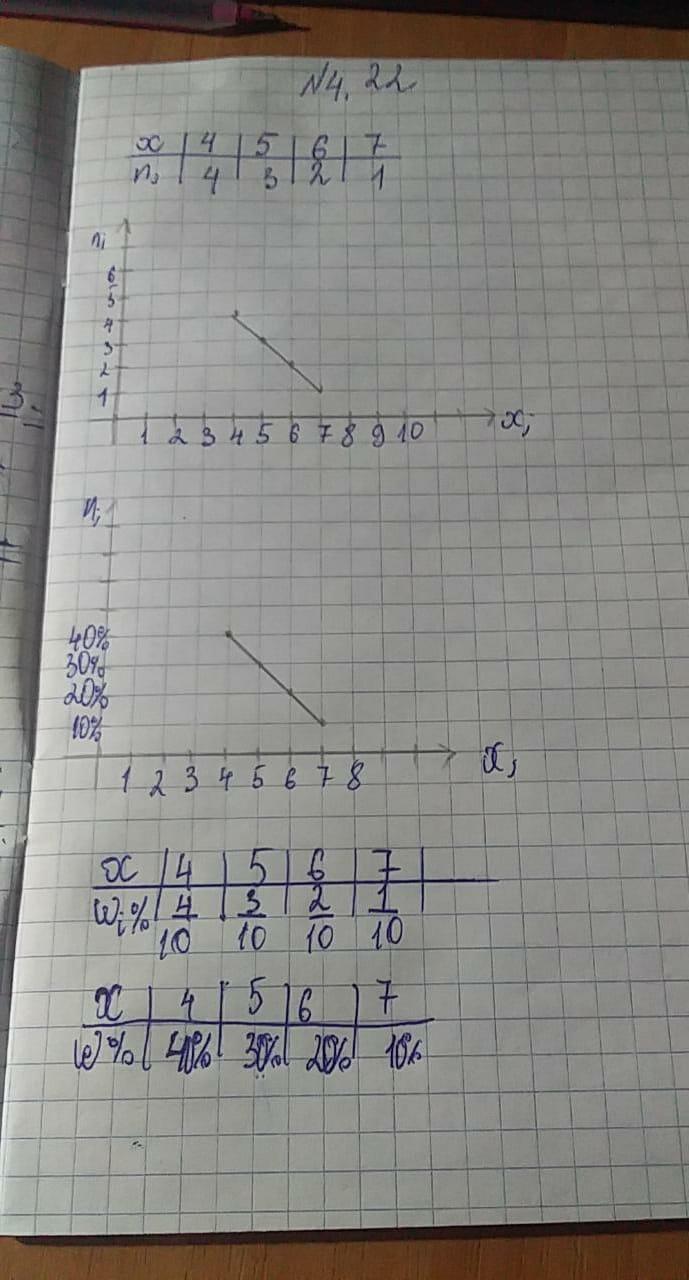 N4.22
x | 4 | 5 | 6 | 7
nᵢ | 4 | 3 | 2 | 1
nᵢ
6
5
4
3
2
1
1 2 3 4 5 6 7 8 9 10 xᵢ
nᵢ
40%
30%
20%
10%
xᵢ
1 2 3 4 5 6 7 8
x | 4 | 5 | 6 | 7 |
Wᵢ% | 4/10 | 3/10 | 2/10 | 1/10
x | 4 | 5 | 6 | 7
W% | 40% | 30% | 20% | 10%
3